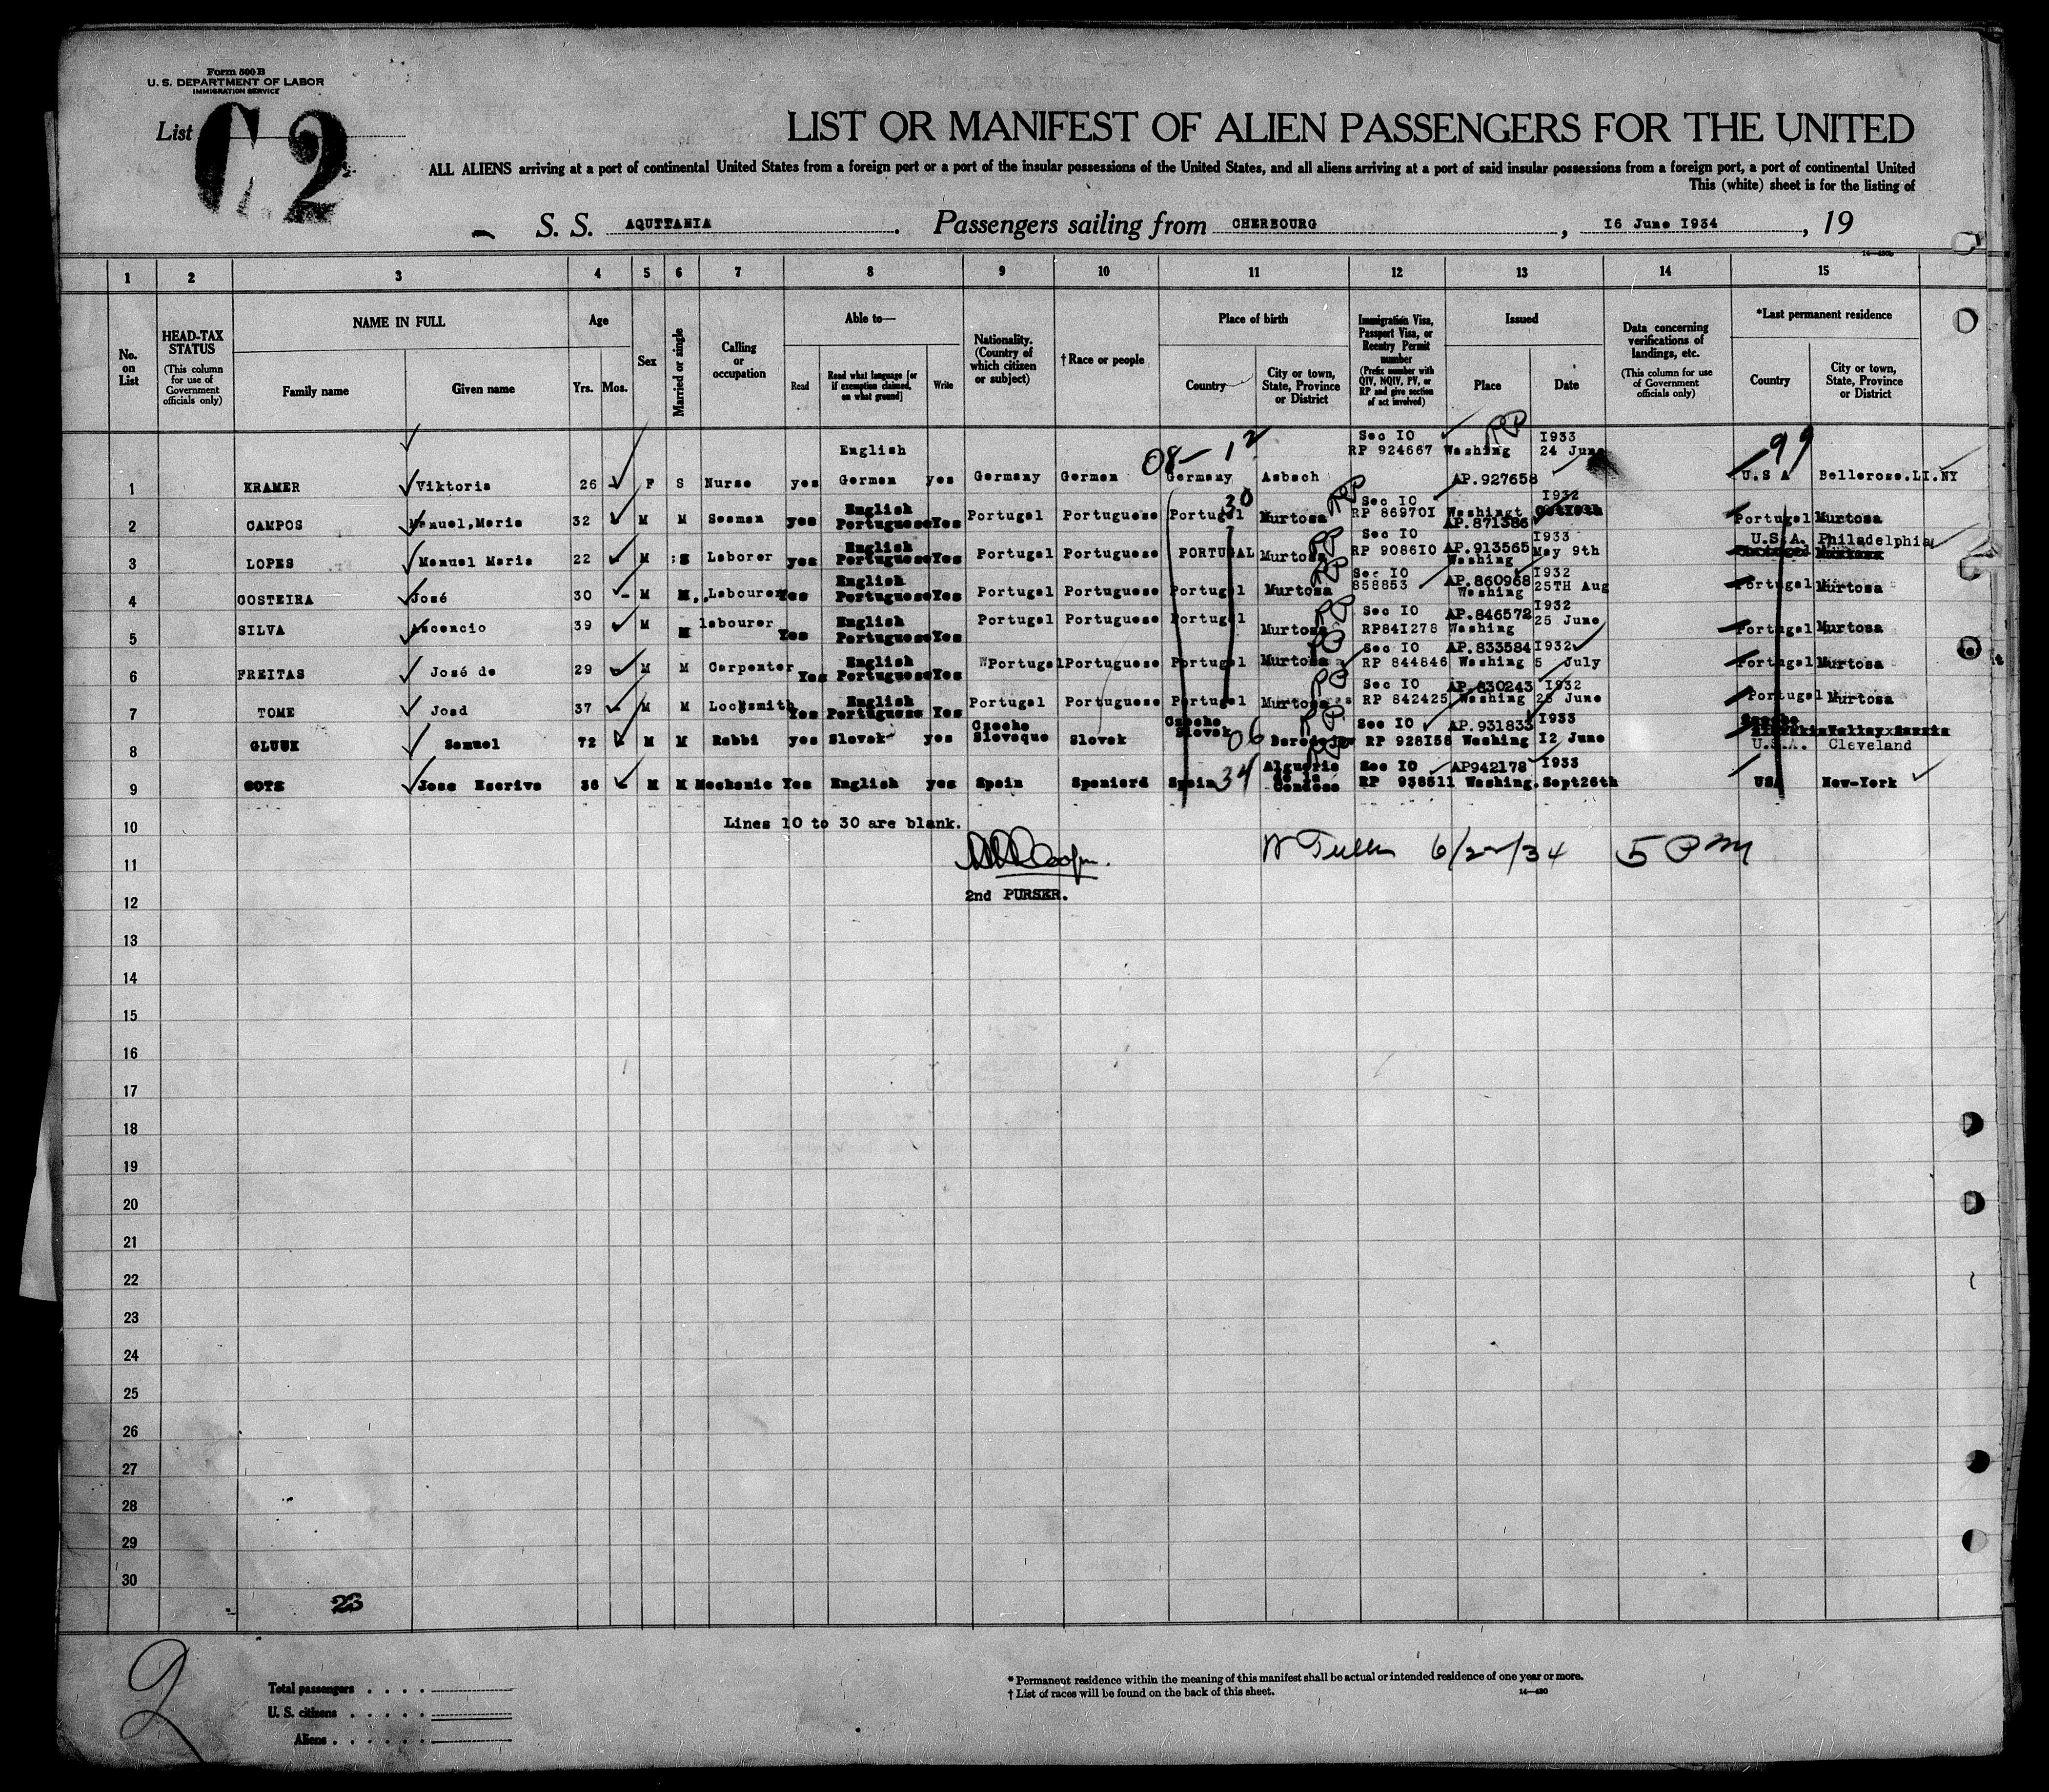 Form 500 B
U. S. DEPARTMENT OF LABOR
IMMIGRATION SERVICE
List C 2
LIST OR MANIFEST OF ALIEN PASSENGERS FOR THE UNITED
ALL ALIENS arriving at a port of continental United States from a foreign port or a port of the insular possessions of the United States, and all aliens arriving at a port of said insular possessions from a foreign port, a port of continental United
This (white) sheet is for the listing of
S. S. AQUTTANIA. Passengers sailing from CHERBOURG, 16 June 1934, 19
14—430b
1 2 3 4 5 6 7 8 9 10 11 12 13 14 15
No. on List
HEAD-TAX STATUS (This column for use of Government officials only)
NAME IN FULL Family name Given name
Age Yrs. Mos.
Sex
Married or single
Calling or occupation
Able to— Read Read what language [or if exemption claimed, on what ground] Write
Nationality. (Country of which citizen or subject)
†Race or people
Place of birth Country City or town, State, Province or District
Immigration Visa, Passport Visa, or Reentry Permit number (Prefix number with QIV, NQIV, PV, or RP and give section of act involved)
Issued Place Date
Data concerning verifications of landings, etc. (This column for use of Government officials only)
*Last permanent residence Country City or town, State, Province or District
08-12 99
English Sec IO RP 924667 Washing I933 24 June
1 KRAMER Viktoria 26 F S Nurse yes German yes Germany German Germany Asbach AP.927658 U.S A Bellerose.LI.NY
30
2 CAMPOS Manuel,Maria 32 M M Seaman yes English Portuguese Yes Portugal Portuguese Portugal Murtosa Sec IO RP 86970I Washingt AP.871386 I932 Portugal Murtosa
3 LOPES Manuel Maria 22 M S Laborer yes English Portuguese Yes Portugal Portuguese PORTUGAL Murtosa Sec IO RP 9086IO AP.913565 Washing I933 May 9th U.S.A. Philadelphia
4 COSTEIRA José 30 M M. Labourer Yes English Portuguese Yes Portugal Portuguese Portugal Murtosa Sec IO 858853 AP.860968 Washing I932 25TH Aug Portugal Murtosa
5 SILVA Ascencio 39 M M labourer Yes English Portuguese Yes Portugal Portuguese Portugal Murtosa Sec IO RP84I278 AP.846572 Washing I932 25 June Portugal Murtosa
6 FREITAS José de 29 M M Carpenter Yes English Portuguese Yes Portugal Portuguese Portugal Murtosa Sec IO RP 844846 AP.833584 Washing I932 5 July Portugal Murtosa
7 TOME José 37 M M Locksmith Yes English Portuguese Yes Portugal Portuguese Portugal Murtosa Sec IO RP 842425 AP.830243 Washing I932 25 June Portugal Murtosa
8 GLUUK Samuel 72 M M Rabbi yes Slovak yes Czecho Slovaque Slovak Czecho Slovak 06 Sec IO RP 928I58 AP.931833 Washing I933 I2 June U.S.A. Cleveland
9 COTS Jose Escriva 36 M M Mechanic Yes English yes Spain Spaniard Spain 34 Sec IO RP 938511 AP942178 Washing. I933 Sept26th USA New-York
10 Lines 10 to 30 are blank.
11 6/22/34 5 PM
12 2nd PURSER.
13
14
15
16
17
18
19
20
21
22
23
24
25
26
27
28
29
30
23
2
Total passengers
U. S. citizens
Aliens
* Permanent residence within the meaning of this manifest shall be actual or intended residence of one year or more.
† List of races will be found on the back of this sheet. 14—430